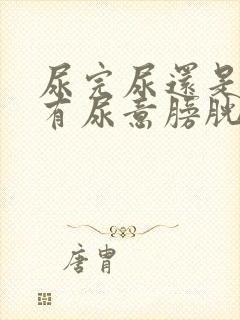 尿完尿還是
有尿意膀胱
唐胄